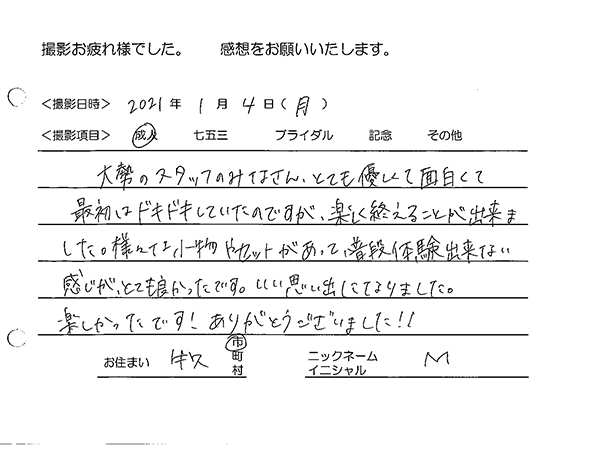 撮影お疲れ様でした。 感想をお願いいたします。
<撮影日時> 2021年 1月 4日(月)
<撮影項目> 成人 七五三 ブライダル 記念 その他
大勢のスタッフのみなさん、とても優しくて面白くて
最初はドキドキしていたのですが、楽しく終えることが出来ま
した。様々な小物やセットがあって、普段体験出来ない
感じが、とても良かったです。いい思い出になりました。
楽しかったです!ありがとうございました!!
お住まい 市町村 ニックネーム イニシャル M